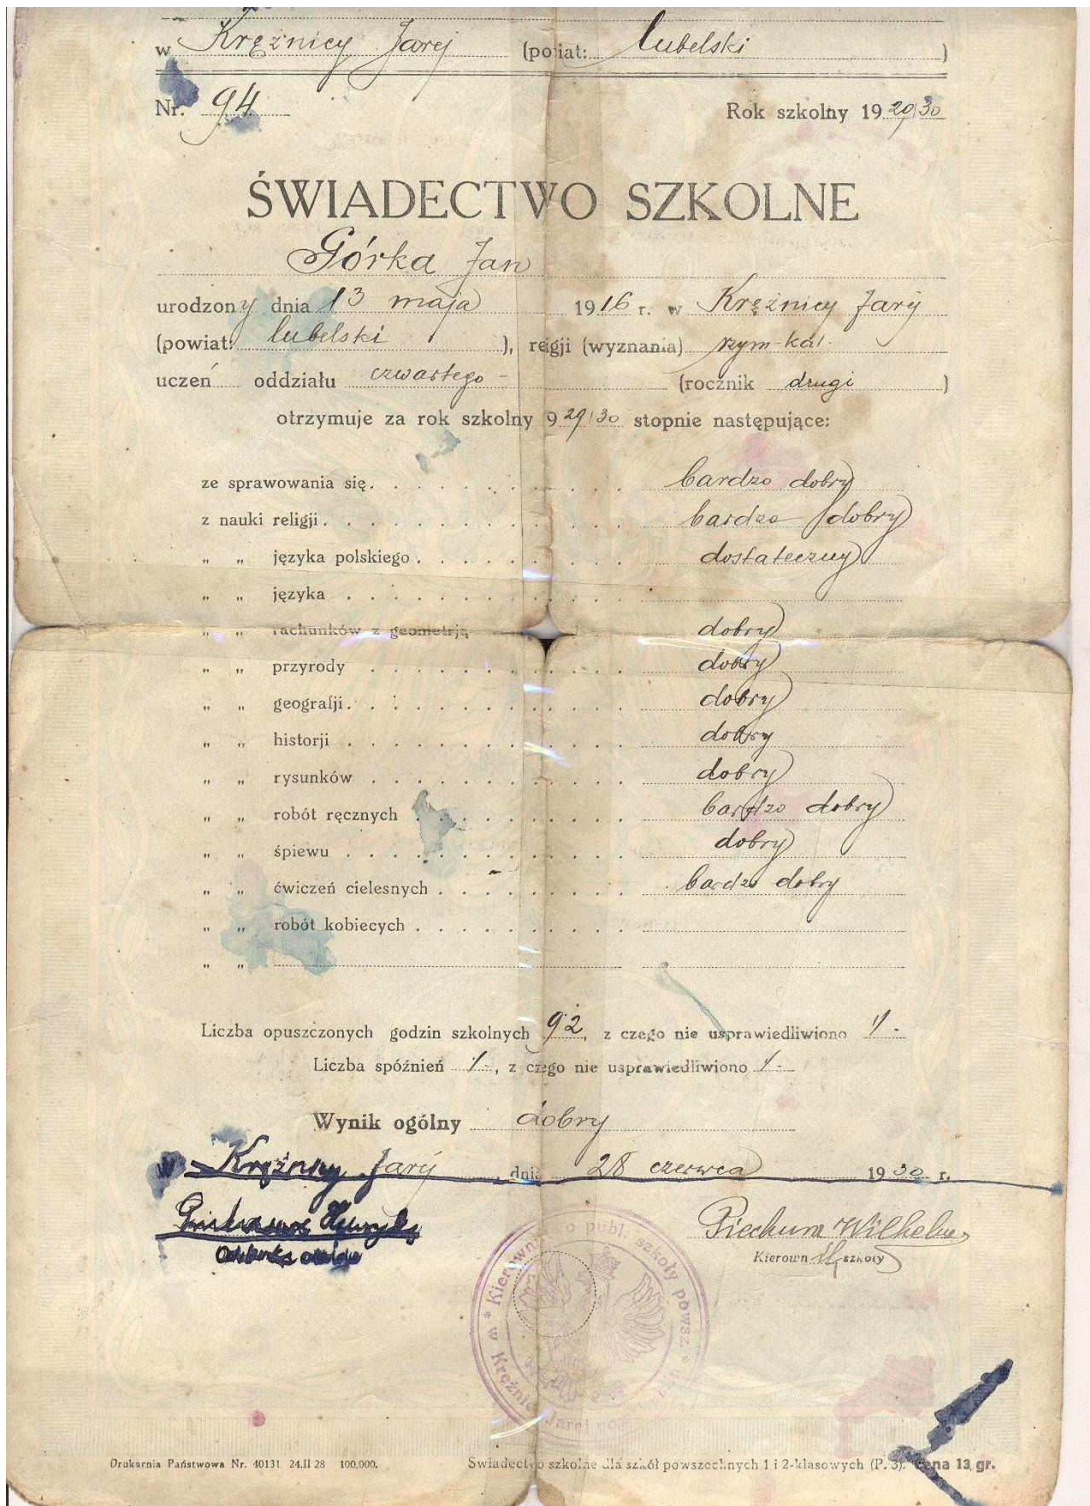 w Krężnicy Jarej (powiat: lubelski )
Nr. 94 Rok szkolny 1929/30
ŚWIADECTWO SZKOLNE
Górka Jan
urodzony dnia 13 maja 1916 r. w Krężnicy Jarej
(powiat: lubelski ), religji (wyznania) rzym-kat.
uczeń oddziału czwartego - (rocznik drugi )
otrzymuje za rok szkolny 1929/30 stopnie następujące:
ze sprawowania się . . . . . . . . bardzo dobry
z nauki religji . . . . . . . . bardzo dobry
„ „ języka polskiego . . . . . . . . dostateczny
„ „ języka . . . . . . . .
„ „ rachunków z geometrją dobry
„ „ przyrody . . . . . . . . dobry
„ „ geografji . . . . . . . . dobry
„ „ historji . . . . . . . . dobry
„ „ rysunków . . . . . . . . dobry
„ „ robót ręcznych . . . . . . . . bardzo dobry
„ „ śpiewu . . . . . . . . dobry
„ „ ćwiczeń cielesnych . . . . . . . . bardzo dobry
„ „ robót kobiecych . . . . . . . .
„ „
Liczba opuszczonych godzin szkolnych 92, z czego nie usprawiedliwiono 1.
Liczba spóźnień 1., z czego nie usprawiedliwiono 1.
Wynik ogólny dobry
w Krężnicy Jarej, dnia 28 czerwca 1930 r.
Piechura Wilhelm
Kierown szkoły
Kierownictwo publ. szkoły powsz.
w Krężnicy Jarej
Drukarnia Państwowa Nr. 40131 24.II 28 100.000. Świadectwo szkolne dla szkół powszechnych 1 i 2-klasowych (P. 3). Cena 13 gr.